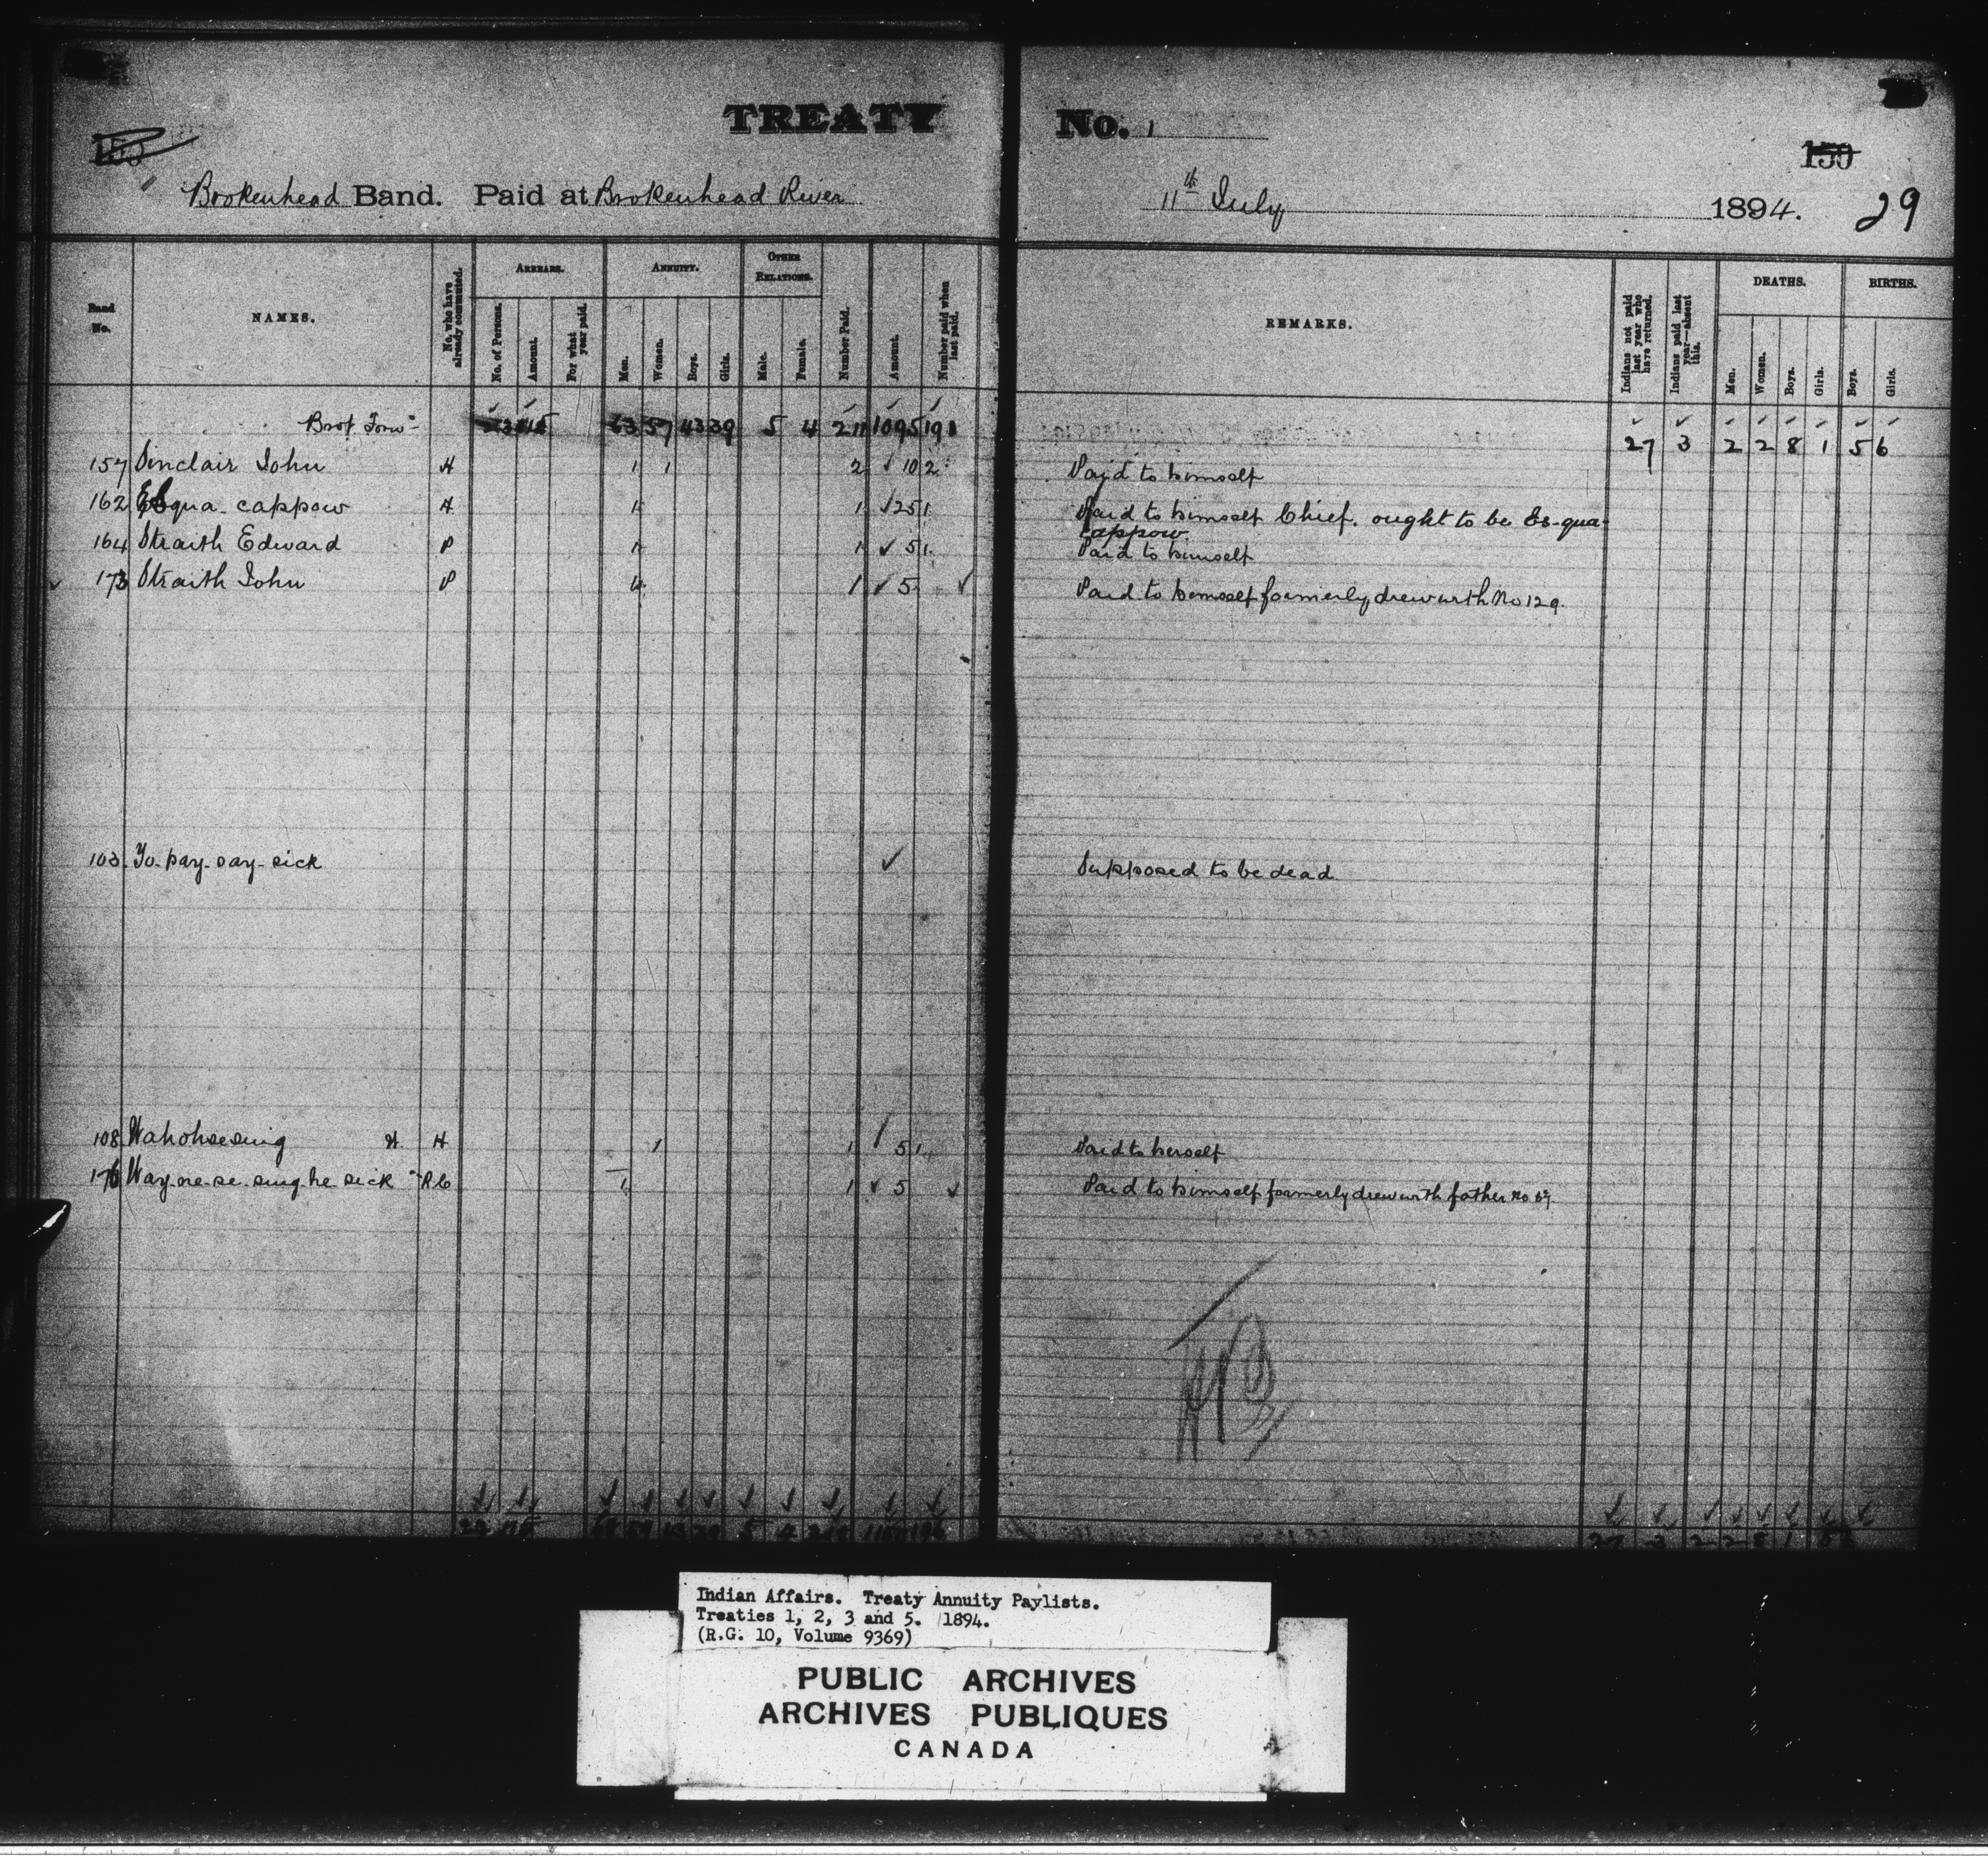 TREATY No. 1
150
29
Brokenhead Band. Paid at Brokenhead River 11th July 1894.
Band No.
NAMES.
No. who have already commuted.
ARREARS.
No. of Persons.
Amount.
For what year paid.
ANNUITY.
Men.
Women.
Boys.
Girls.
OTHER RELATIONS.
Male.
Female.
Number Paid.
Amount.
Number paid when last paid.
REMARKS.
Indians not paid last year who have returned.
Indians paid last year—absent this.
DEATHS.
Men.
Women.
Boys.
Girls.
BIRTHS.
Boys.
Girls.
Brot Forw 63 57 43 39 5 4 211 1095 191 27 3 2 2 8 1 5 6
157 Sinclair John H 1 1 2 ✓ 10 2 Paid to himself
162 Esqua-cappow H 1 1 ✓ 25 1 Paid to himself Chief. ought to be Es-qua-
cappow.
164 Straith Edward P 1 1 ✓ 5 1 Paid to himself
✓ 173 Straith John P 1 1 ✓ 5 ✓ Paid to himself formerly drew with No 129.
103. Yo-pay-say-sick ✓ Supposed to be dead
108 Wahohseesing H 1 1 5 1 Paid to herself
176 Way-ne-se-sing-he sick R C 1 1 ✓ 5 ✓ Paid to himself formerly drew with father no
5 4
27 3 2 2 8 1 5
Indian Affairs. Treaty Annuity Paylists.
Treaties 1, 2, 3 and 5. 1894.
(R.G. 10, Volume 9369)
PUBLIC ARCHIVES
ARCHIVES PUBLIQUES
CANADA